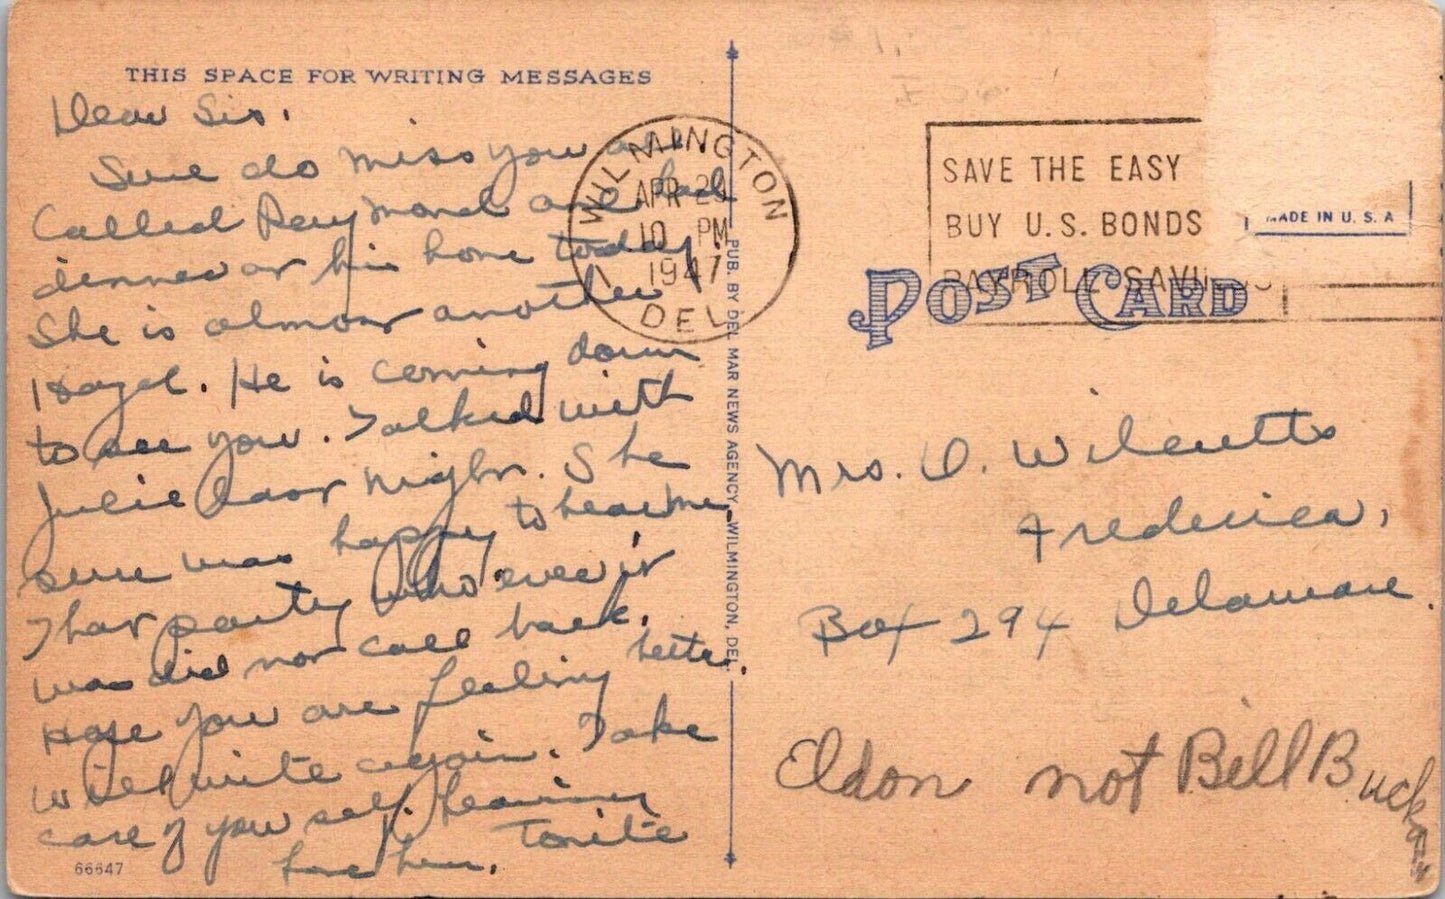 THIS SPACE FOR WRITING MESSAGES
Dear Sis.
Sure do miss you all
Called Raymond and had
dinner at his home today.
She is almost another
Hazel. He is coming down
to see you. Talked with
Julie last night. She
sure was happy to hear me
That party who ever it
was did not call back.
Hope you are feeling better.
Will write again. Take
care of your self. Leaving
here tonite
Love Lew.
66647
PUB. BY DEL MAR NEWS AGENCY, WILMINGTON, DEL.
WILMINGTON
APR 29
10 PM
1947
DEL
SAVE THE EASY
BUY U.S. BONDS
PAYROLL SAVINGS
MADE IN U.S.A
POST CARD
Mrs. O. Wilcutts
Frederica,
Box 294 Delaware.
Eldon not Bill Buckson